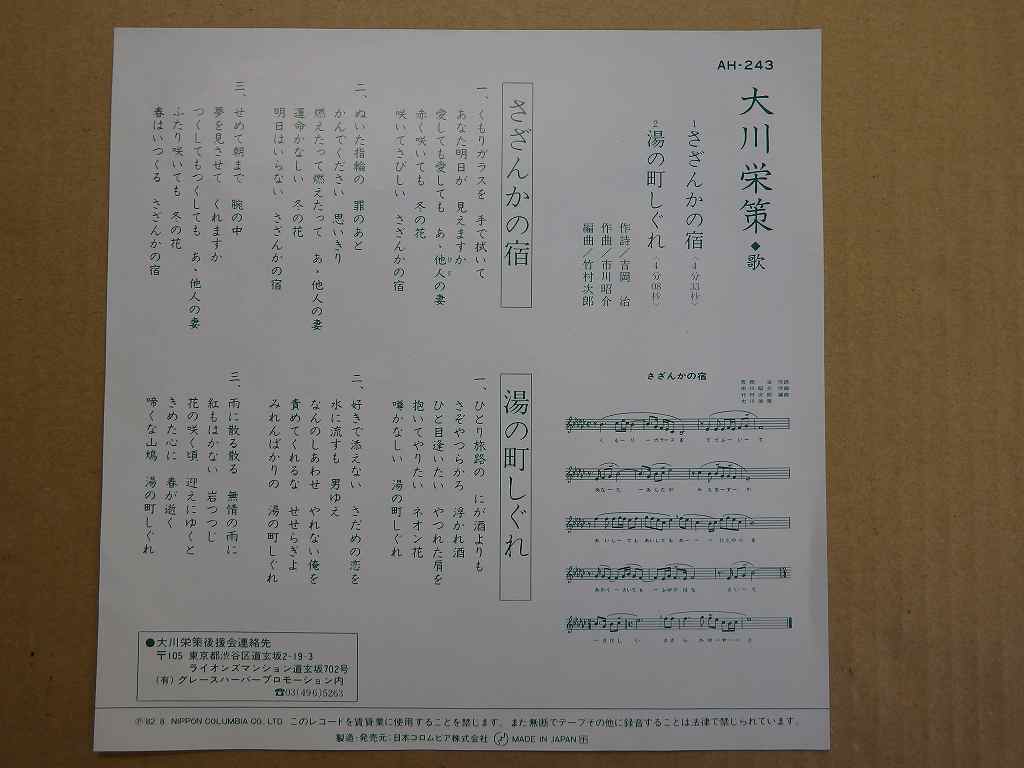 AH-243
大川栄策◆歌
1 さざんかの宿〈4分33秒〉
2 湯の町しぐれ〈4分08秒〉
作詩／吉岡 治
作曲／市川昭介
編曲／竹村次郎
さざんかの宿
一、くもりガラスを 手で拭いて
あなた明日が 見えますか
愛しても愛しても あゝ他人の妻
赤く咲いても 冬の花
咲いてさびしい さざんかの宿
二、ぬいた指輪の 罪のあと
かんでください 思いきり
燃えたって燃えたって あゝ他人の妻
運命かなしい 冬の花
明日はいらない さざんかの宿
三、せめて朝まで 腕の中
夢を見させて くれますか
つくしてもつくしても あゝ他人の妻
ふたり咲いても 冬の花
春はいつくる さざんかの宿
さざんかの宿
湯の町しぐれ
一、ひとり旅路の にが酒よりも
さぞやつらかろ 浮かれ酒
ひと目逢いたい やつれた肩を
抱いてやりたい ネオン花
噂かなしい 湯の町しぐれ
二、好きで添えない さだめの恋を
水に流すも 男ゆえ
なんのしあわせ やれない俺を
責めてくれるな せせらぎよ
みれんばかりの 湯の町しぐれ
三、雨に散る散る 無情の雨に
紅もはかない 岩つつじ
花の咲く頃 迎えにゆくと
きめた心に 春が逝く
啼くな山鳩 湯の町しぐれ
●大川栄策後援会連絡先
〒105 東京都渋谷区道玄坂2-19-3
ライオンズマンション道玄坂702号
(有)グレースハーバープロモーション内
☎03(496)5263
Ⓟ82.8 NIPPON COLUMBIA CO., LTD. このレコードを賃貸業に使用することを禁じます。また無断でテープその他に録音することは法律で禁じられています。
製造・発売元:日本コロムビア株式会社 MADE IN JAPAN